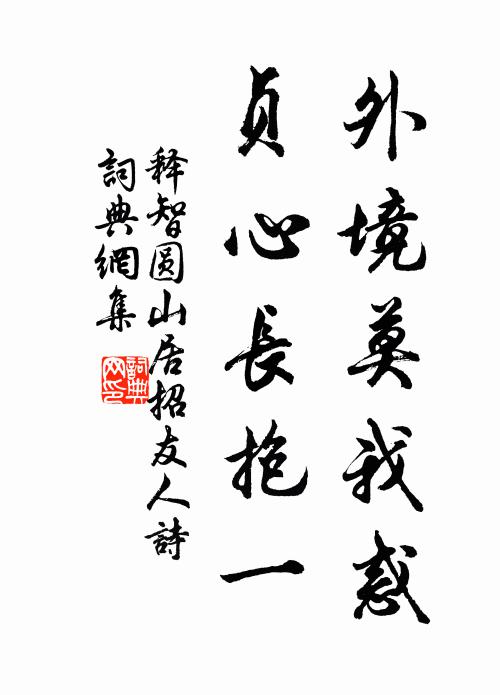 外境莫我惑
貞心長抱一
释智圆山居招友人詩
詞典網集
詞典網印